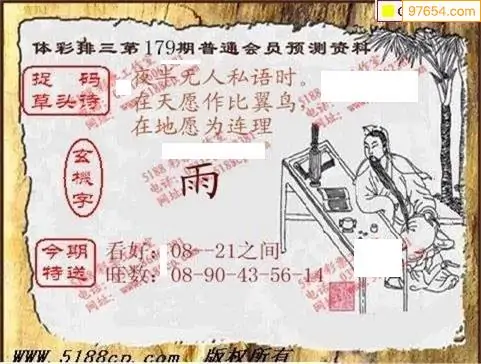 97654.com
体彩排三第179期普通会员预测资料
捉码
草头诗
夜半无人私语时。
在天愿作比翼鸟,
在地愿为连理
玄機字
雨
今期
特送
看好:08--21之间
旺数:08-90-43-56-14
www.5188cp.com 版权所有